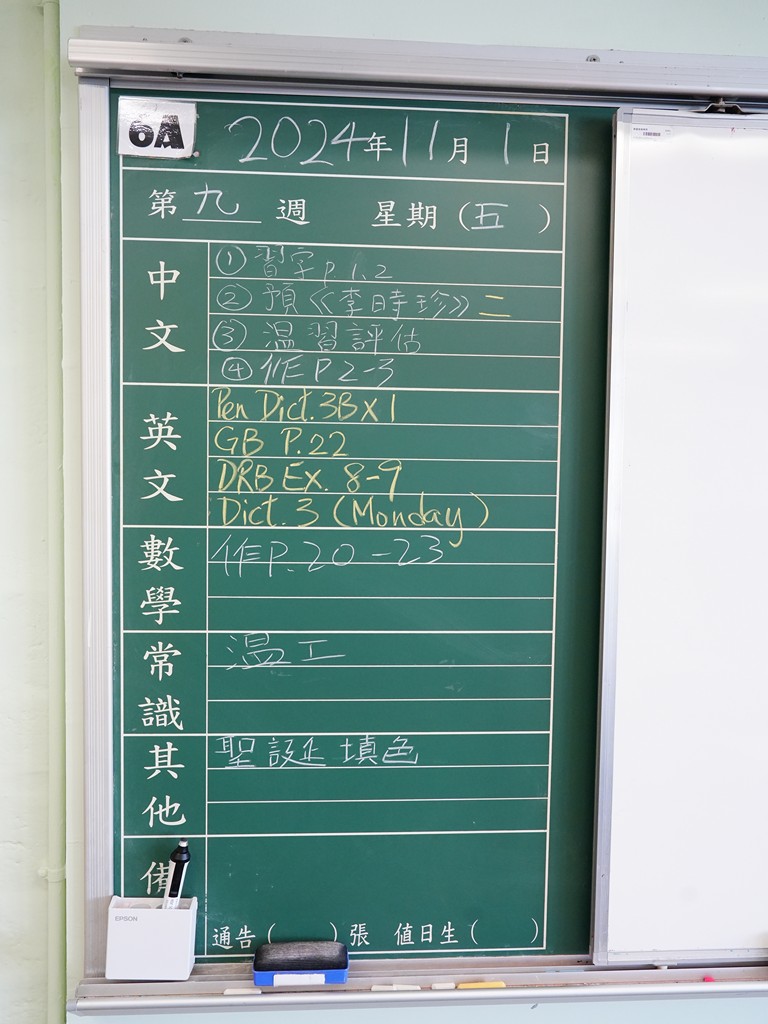 6A
2024年11月1日
第九週 星期(五)
中文
①習字P.1,2
②預《李時珍》二
③溫習評估
④作P2-3
英文
Pen Dict.3Bx1
GB P.22
DRB Ex. 8-9
Dict. 3 (Monday)
數學
作P.20-23
常識
溫工
其他
聖誕填色
備
通告( )張 值日生( )
EPSON